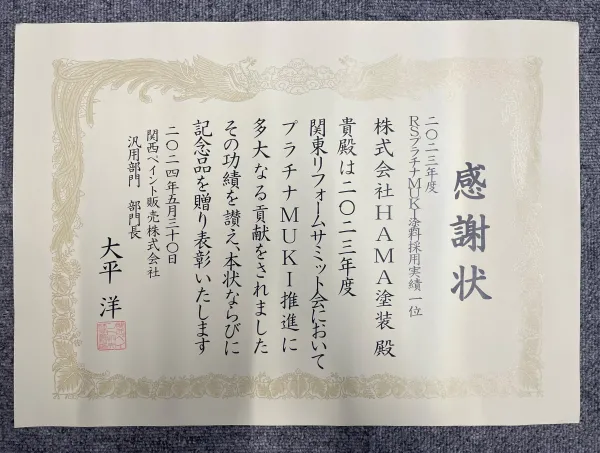 感謝状
二〇二三年度
RSプラチナMUKI塗料採用実績一位
株式会社HAMA塗装 殿
貴殿は二〇二三年度
関東リフォームサミット会において
プラチナMUKI推進に
多大なる貢献をされました
その功績を讃え、本状ならびに
記念品を贈り表彰いたします
二〇二四年五月三十〇日
関西ペイント販売株式会社
汎用部門 部門長
大平 洋